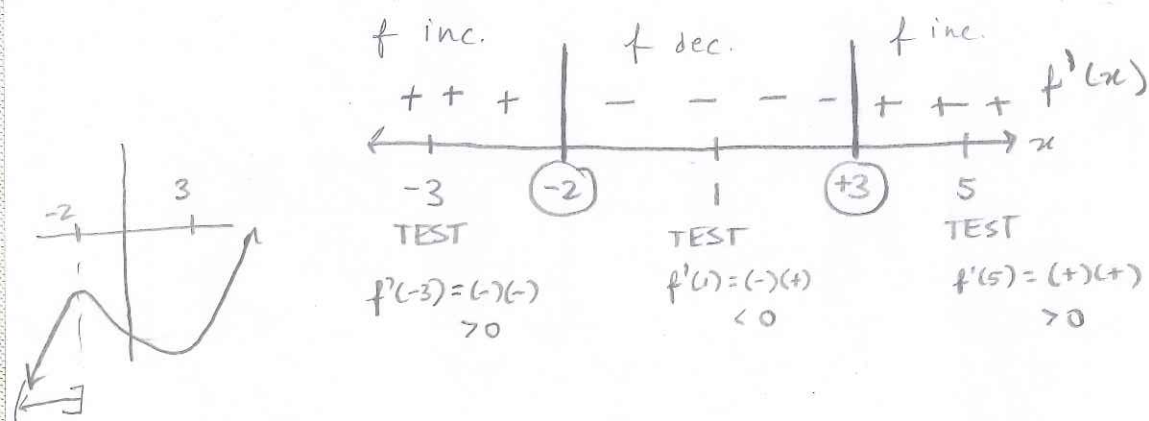 f inc. f dec. f inc.
+ + + − − − − + + + f'(x)
x
-3 -2 1 +3 5
TEST TEST TEST
f'(-3) = (-)(-) f'(1) = (-)(+) f'(5) = (+)(+)
> 0 < 0 > 0
-2 3